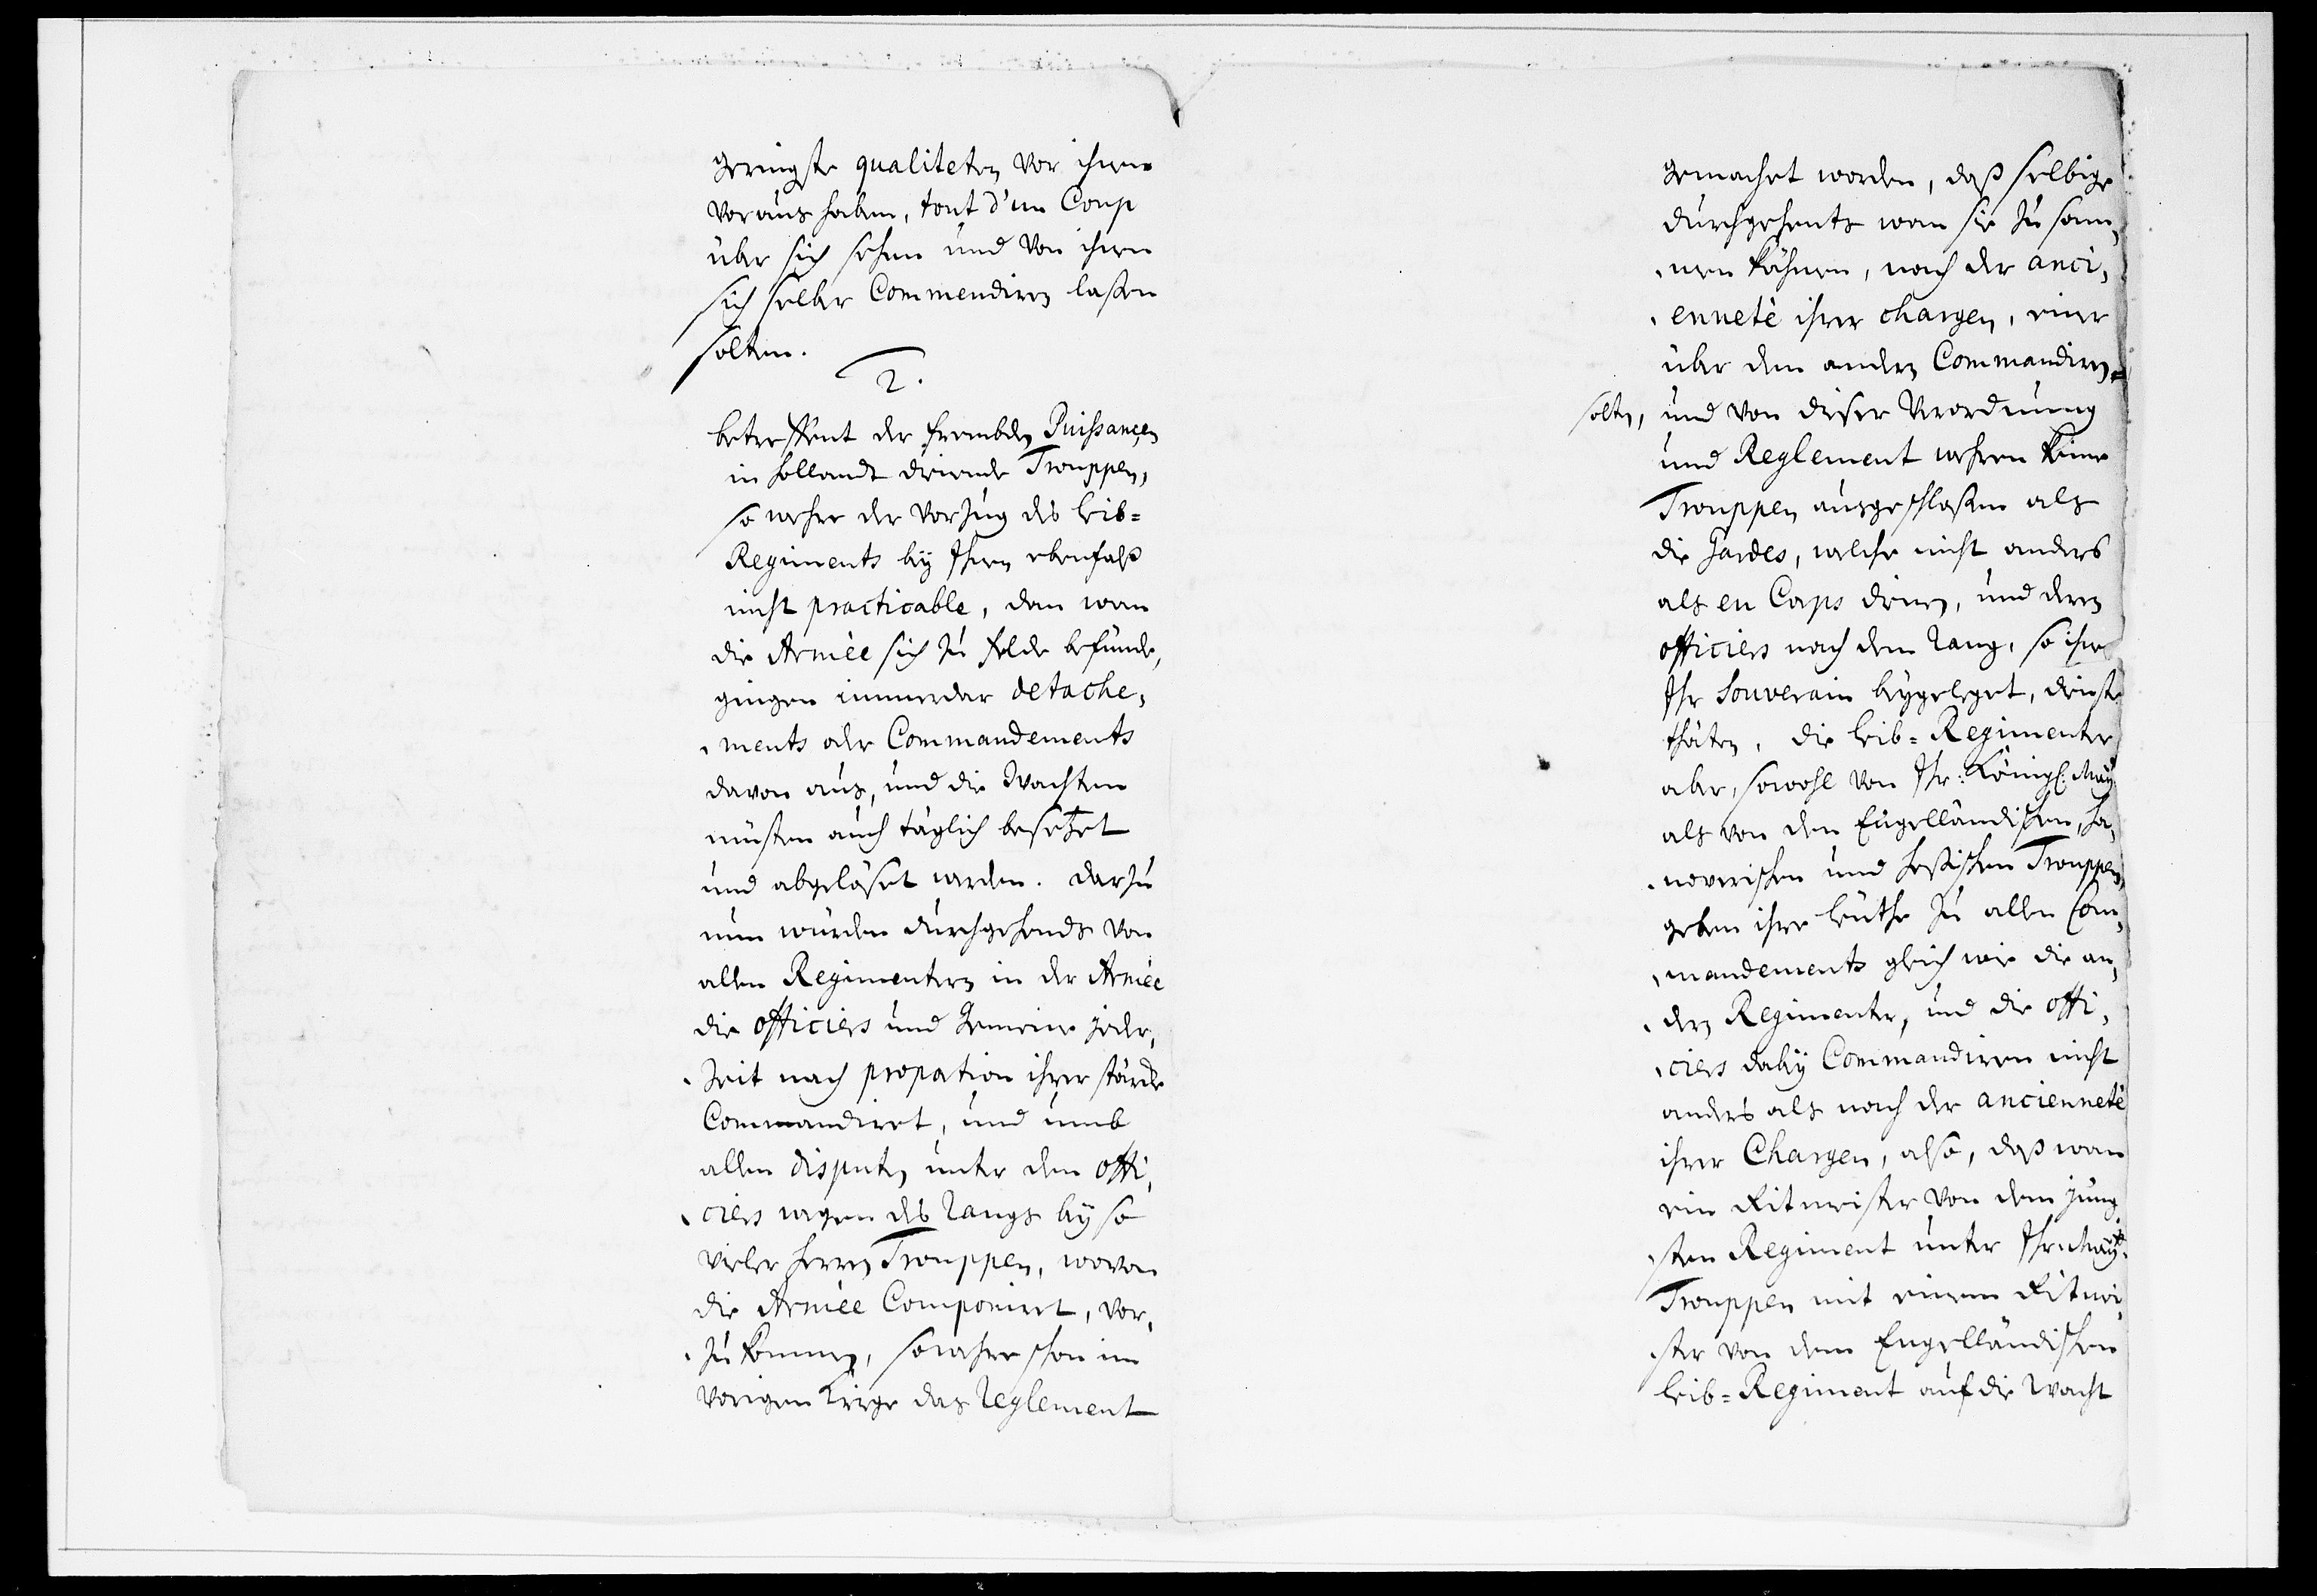 geringste qualiteten vor ihnen
voraus haben, tout d'un Coup
über sich sehen und von ihnen
sich selber Commendiren laßen
solten.
2.
betreffent der frembden Puissançen
in Hollandt dienende Trouppen,
so wehre der Vorzug des Leib=
Regiments bÿ Ihnen ebenfalß
nicht practicable, dan wan
die Armée sich zu felde befünde,
gingen immerdar detache,
ments oder Commandements
davon aus, und die Wachten
müsten auch täglich besetzet
und abgelöset werden. Darzu
nun würden durchgehends von
allen Regimentern in der Armée
die officiers und Gemeine jeder,
Zeit nach propation ihrer stärcke
Commandiret, und umb
allen disputen unter den offi,
ciers wegen des Rangs bÿ so
vieler Herren Trouppen, wovon
die Armée Componiret, vor,
zu kommen, so wehre schon im
vorigen Kriege das Reglement
gemachet worden, daß selbige
durchgehents wan sie zu sam,
men kähmen, nach der anci,
enneté ihrer chargen, einer
über dem andern Commandiren
solten, und von dieser Verordnung
und Reglement wehren keine
Trouppen ausgeschloßen als
die Gardes, welche nicht anders
als en Corps dienen, und deren
officiers nach dem Rang, so ihnen
Ihr Souverain beÿgeleget, dienste
thäten, die Leib=Regimenter
aber, sowohl von Ihr: Königl: Maÿ:
als von den Engelländischen, Ha,
noverischen und Heßischen Trouppen,
geben ihre Leuthe zu allen Com,
mandements gleich wie die an,
dern Regimenter, und die offi,
ciers dabÿ Commandiren nicht
anders als nach der ancienneté
ihrer Chargen, also, daß wan
ein Ritmeister von dem jüng
sten Regiment unter Ihr Maÿt:
Trouppen mit einem Ritmei,
ster von dem Engelländischen
Leib=Regiment auf die Wacht